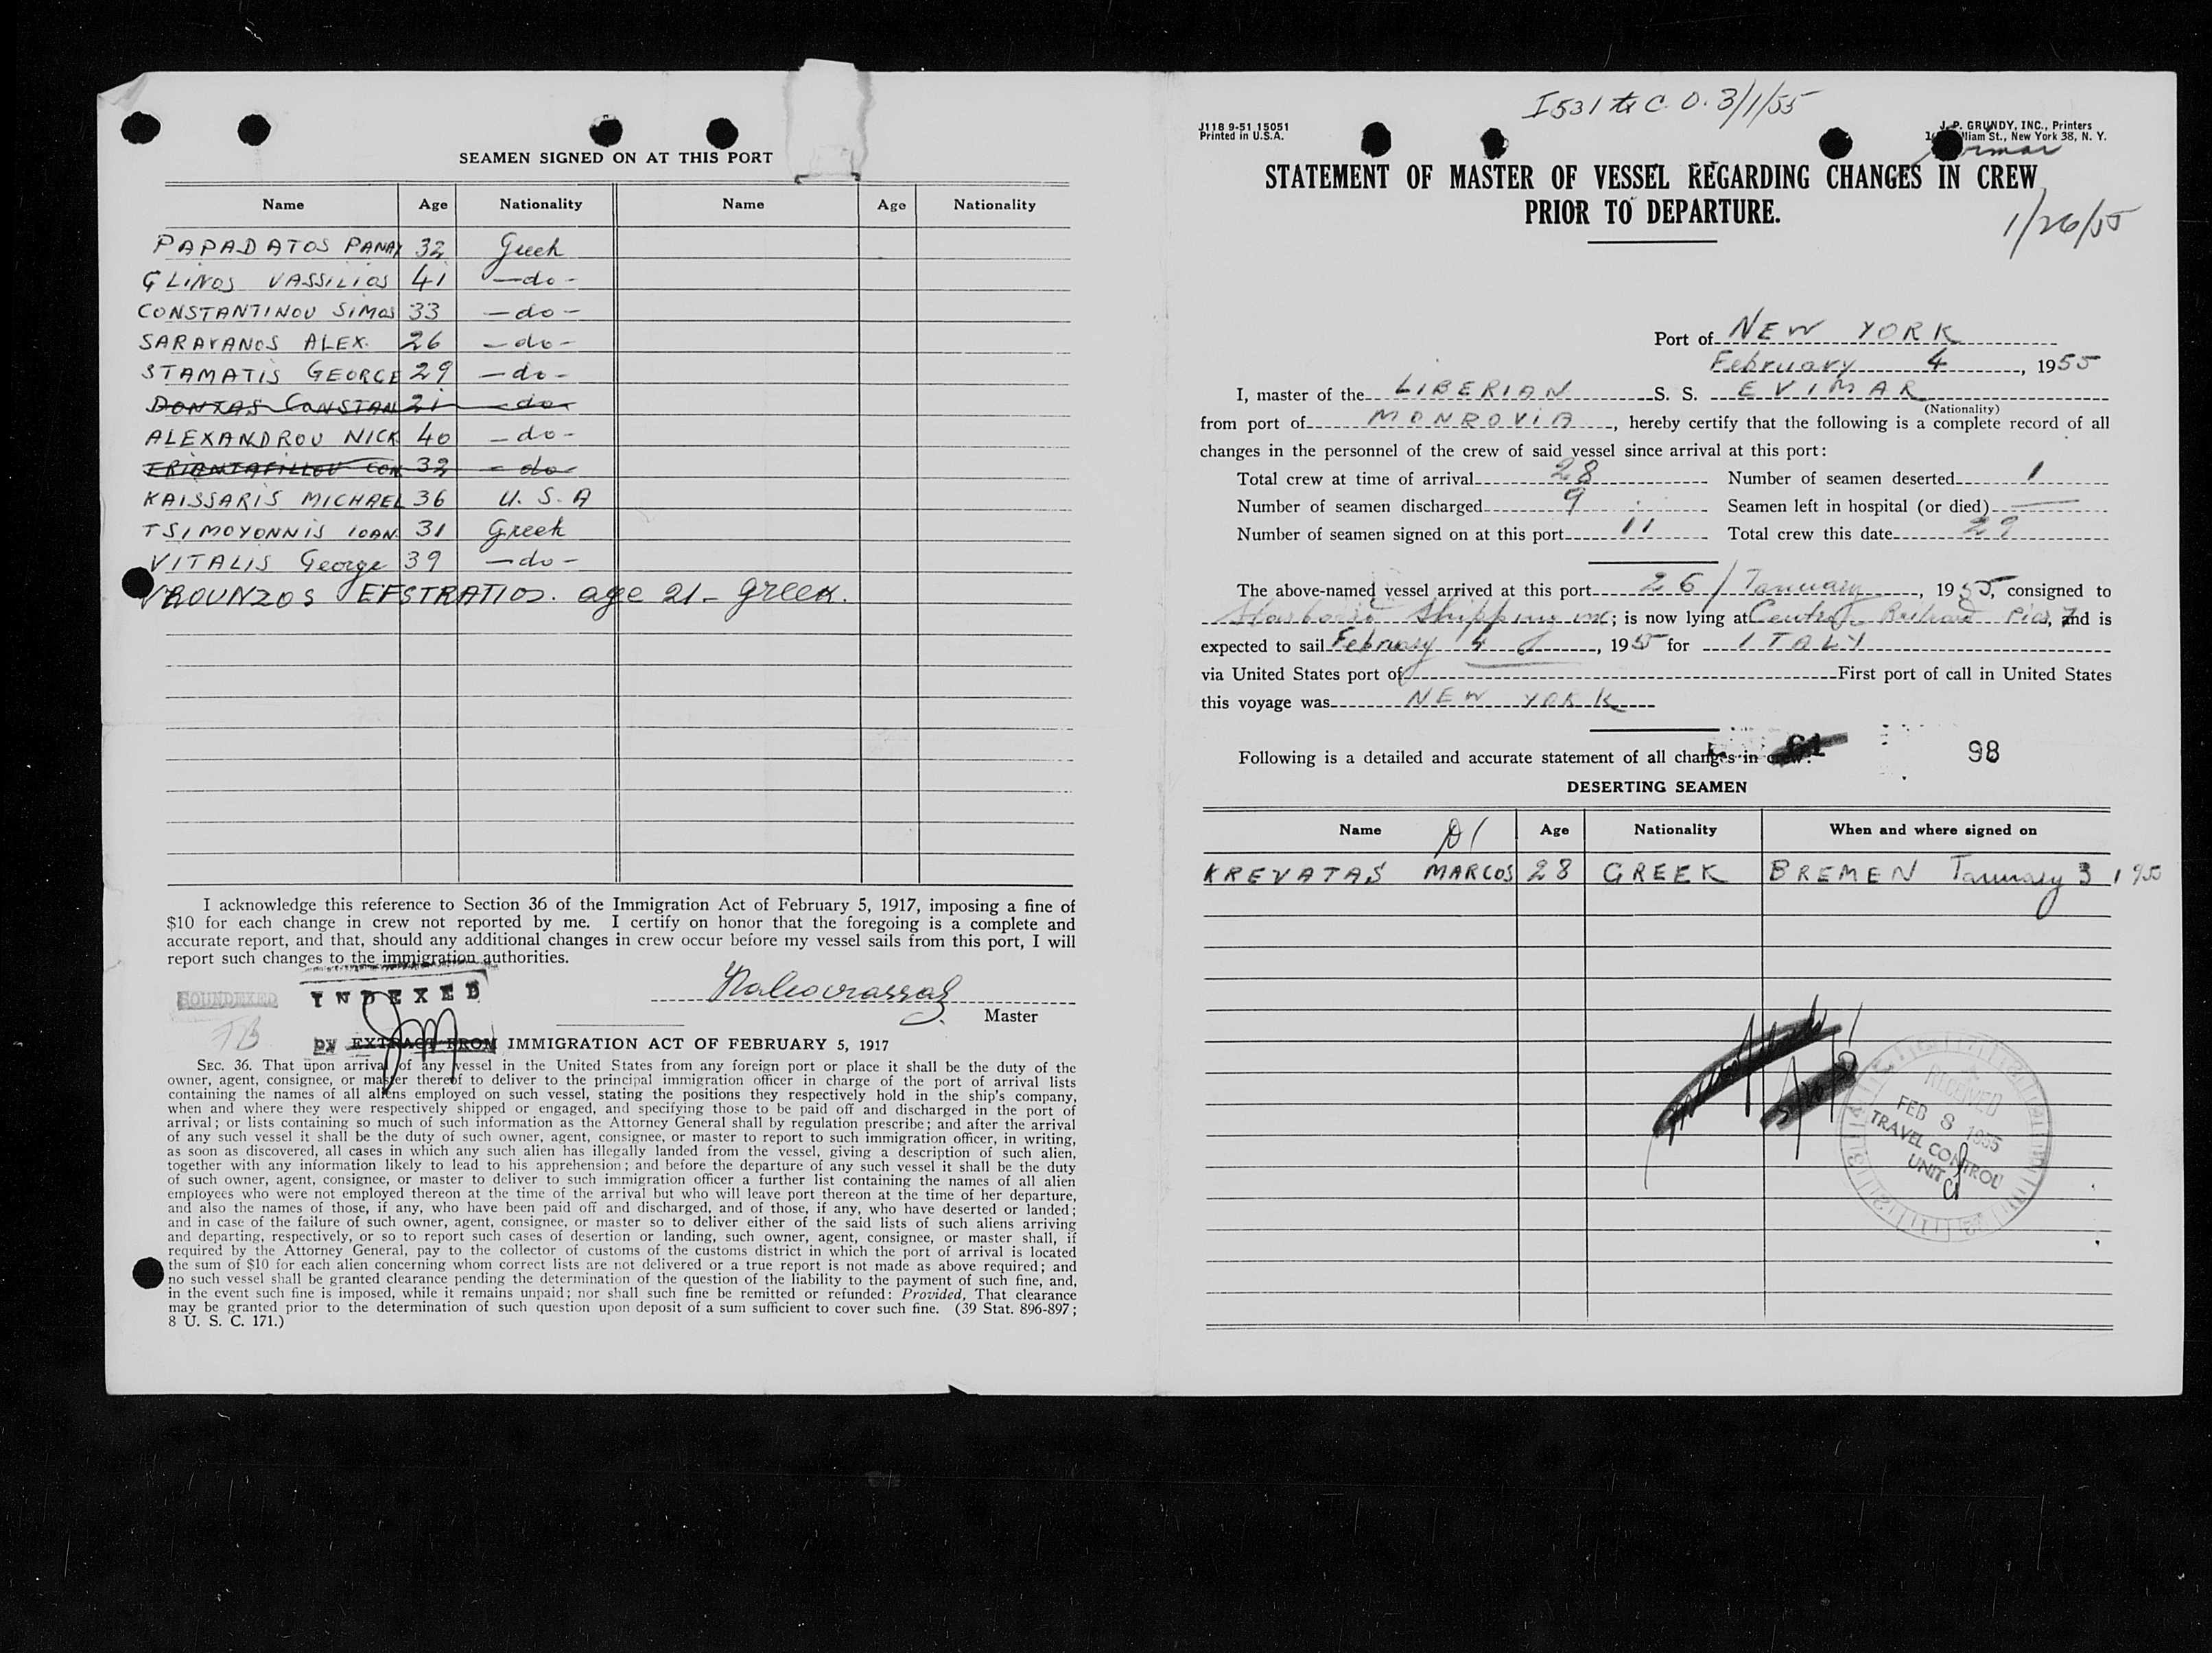 SEAMEN SIGNED ON AT THIS PORT
Name Age Nationality Name Age Nationality
PAPADATOS PANAY 32 Greek
GLINOS VASSILIOS 41 -do-
CONSTANTINOU SIMOS 33 -do-
SARAVANOS ALEX. 26 -do-
STAMATIS GEORGE 29 -do-
DONTAS CONSTAN 21 -do-
ALEXANDROU NICK 40 -do-
TRIANTAFILLOU CON 32 -do-
KAISSARIS MICHAEL 36 U.S.A
TSIMOYONNIS IOAN. 31 Greek
VITALIS George 39 -do-
VROUNZOS EFSTRATIOS. age 21- greek.
I acknowledge this reference to Section 36 of the Immigration Act of February 5, 1917, imposing a fine of
$10 for each change in crew not reported by me. I certify on honor that the foregoing is a complete and
accurate report, and that, should any additional changes in crew occur before my vessel sails from this port, I will
report such changes to the immigration authorities.
SOUNDEXED INDEXED
Master
TB
by EXTRACT FROM IMMIGRATION ACT OF FEBRUARY 5, 1917
SEC. 36. That upon arrival of any vessel in the United States from any foreign port or place it shall be the duty of the
owner, agent, consignee, or master thereof to deliver to the principal immigration officer in charge of the port of arrival lists
containing the names of all aliens employed on such vessel, stating the positions they respectively hold in the ship's company,
when and where they were respectively shipped or engaged, and specifying those to be paid off and discharged in the port of
arrival; or lists containing so much of such information as the Attorney General shall by regulation prescribe; and after the arrival
of any such vessel it shall be the duty of such owner, agent, consignee, or master to report to such immigration officer, in writing,
as soon as discovered, all cases in which any such alien has illegally landed from the vessel, giving a description of such alien,
together with any information likely to lead to his apprehension; and before the departure of any such vessel it shall be the duty
of such owner, agent, consignee, or master to deliver to such immigration officer a further list containing the names of all alien
employees who were not employed thereon at the time of the arrival but who will leave port thereon at the time of her departure,
and also the names of those, if any, who have been paid off and discharged, and of those, if any, who have deserted or landed;
and in case of the failure of such owner, agent, consignee, or master so to deliver either of the said lists of such aliens arriving
and departing, respectively, or so to report such cases of desertion or landing, such owner, agent, consignee, or master shall, if
required by the Attorney General, pay to the collector of customs of the customs district in which the port of arrival is located
the sum of $10 for each alien concerning whom correct lists are not delivered or a true report is not made as above required; and
no such vessel shall be granted clearance pending the determination of the question of the liability to the payment of such fine, and,
in the event such fine is imposed, while it remains unpaid; nor shall such fine be remitted or refunded: Provided, That clearance
may be granted prior to the determination of such question upon deposit of a sum sufficient to cover such fine. (39 Stat. 896-897;
8 U. S. C. 171.)
I531 to C. O. 3/1/55
J118 9-51 15051
Printed in U.S.A.
J. P. GRUNDY, INC., Printers
St., New York 38, N. Y.
STATEMENT OF MASTER OF VESSEL REGARDING CHANGES IN CREW
PRIOR TO DEPARTURE.
1/26/55
Port of NEW YORK
February 4, 1955
I, master of the LIBERIAN S. S. EVIMAR
(Nationality)
from port of MONROVIA, hereby certify that the following is a complete record of all
changes in the personnel of the crew of said vessel since arrival at this port:
Total crew at time of arrival 28 Number of seamen deserted 1
Number of seamen discharged 9 Seamen left in hospital (or died) —
Number of seamen signed on at this port 11 Total crew this date 29
The above-named vessel arrived at this port 26 / January, 1955, consigned to
Shipping inc; is now lying at Central Railroad Pier, 7 and is
expected to sail February 4, 1955 for ITALY
via United States port of First port of call in United States
this voyage was NEW YORK
Following is a detailed and accurate statement of all changes in crew: 61 98
DESERTING SEAMEN
Name Age Nationality When and where signed on
KREVATAS MARCOS 28 GREEK BREMEN January 3 1955
RECEIVED
FEB 8 1955
TRAVEL CONTROL
UNIT